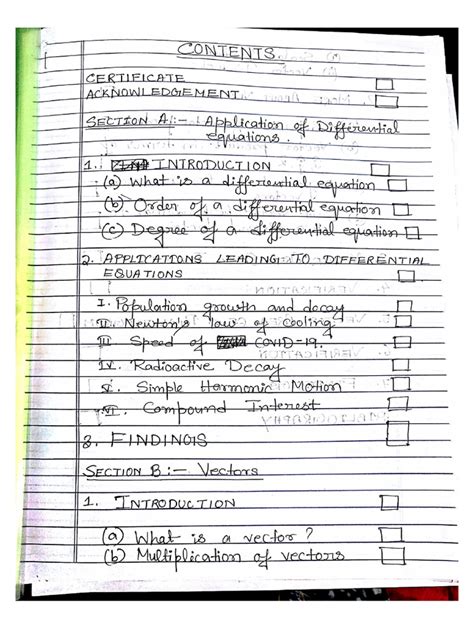 CONTENTS
CERTIFICATE
ACKNOWLEDGEMENT
SECTION A:- Application of Differential
equations.
1. INTRODUCTION
(a) What is a differential equation
(b) Order of a differential equation
(c) Degree of a differential equation
2. APPLICATIONS LEADING TO DIFFERENTIAL
EQUATIONS
I. Population growth and decay
II. Newton's law of cooling
III Spead of COVID-19.
IV. Radioactive Decay
V. Simple Harmonic Motion
VI. Compound Interest
3. FINDINGS
SECTION B:- Vectors
1. INTRODUCTION
(a) What is a vector?
(b) Multiplication of vectors